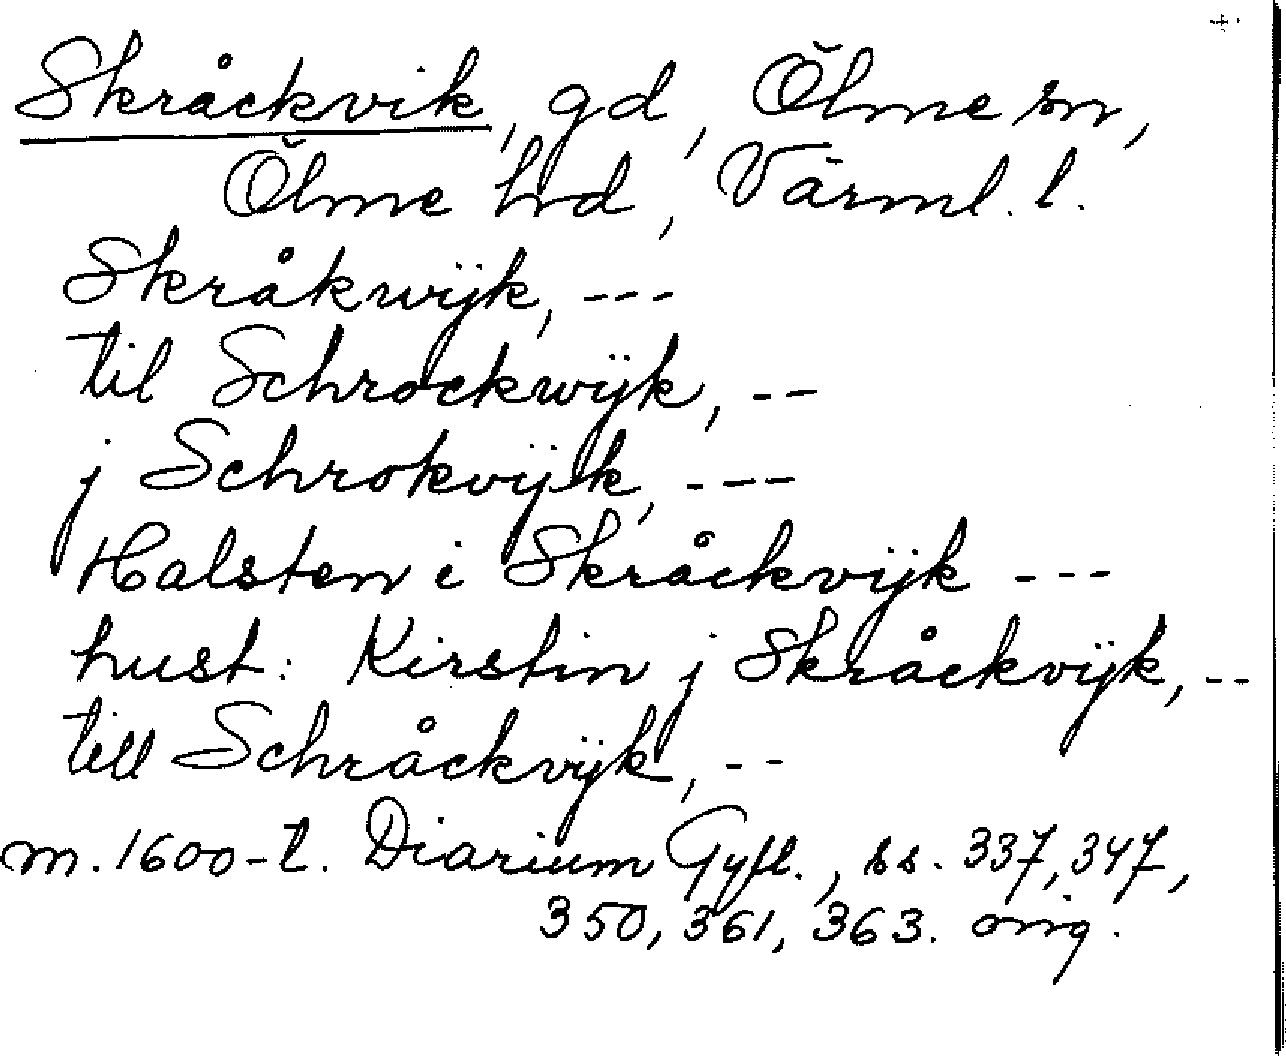 Skråckvik, gd, Ölme sn,
Ölme hd, Värml. l.
Skråkwijk, ---
til Schrockwÿk, --
j Schrokvijk, ---
Halsten i Skråckvijk ---
hust: Kirstin j Skråckvijk, --
till Schråckvijk, --
m. 1600-t. Diarium Gyll., ss. 337, 347,
350, 361, 363. orig.